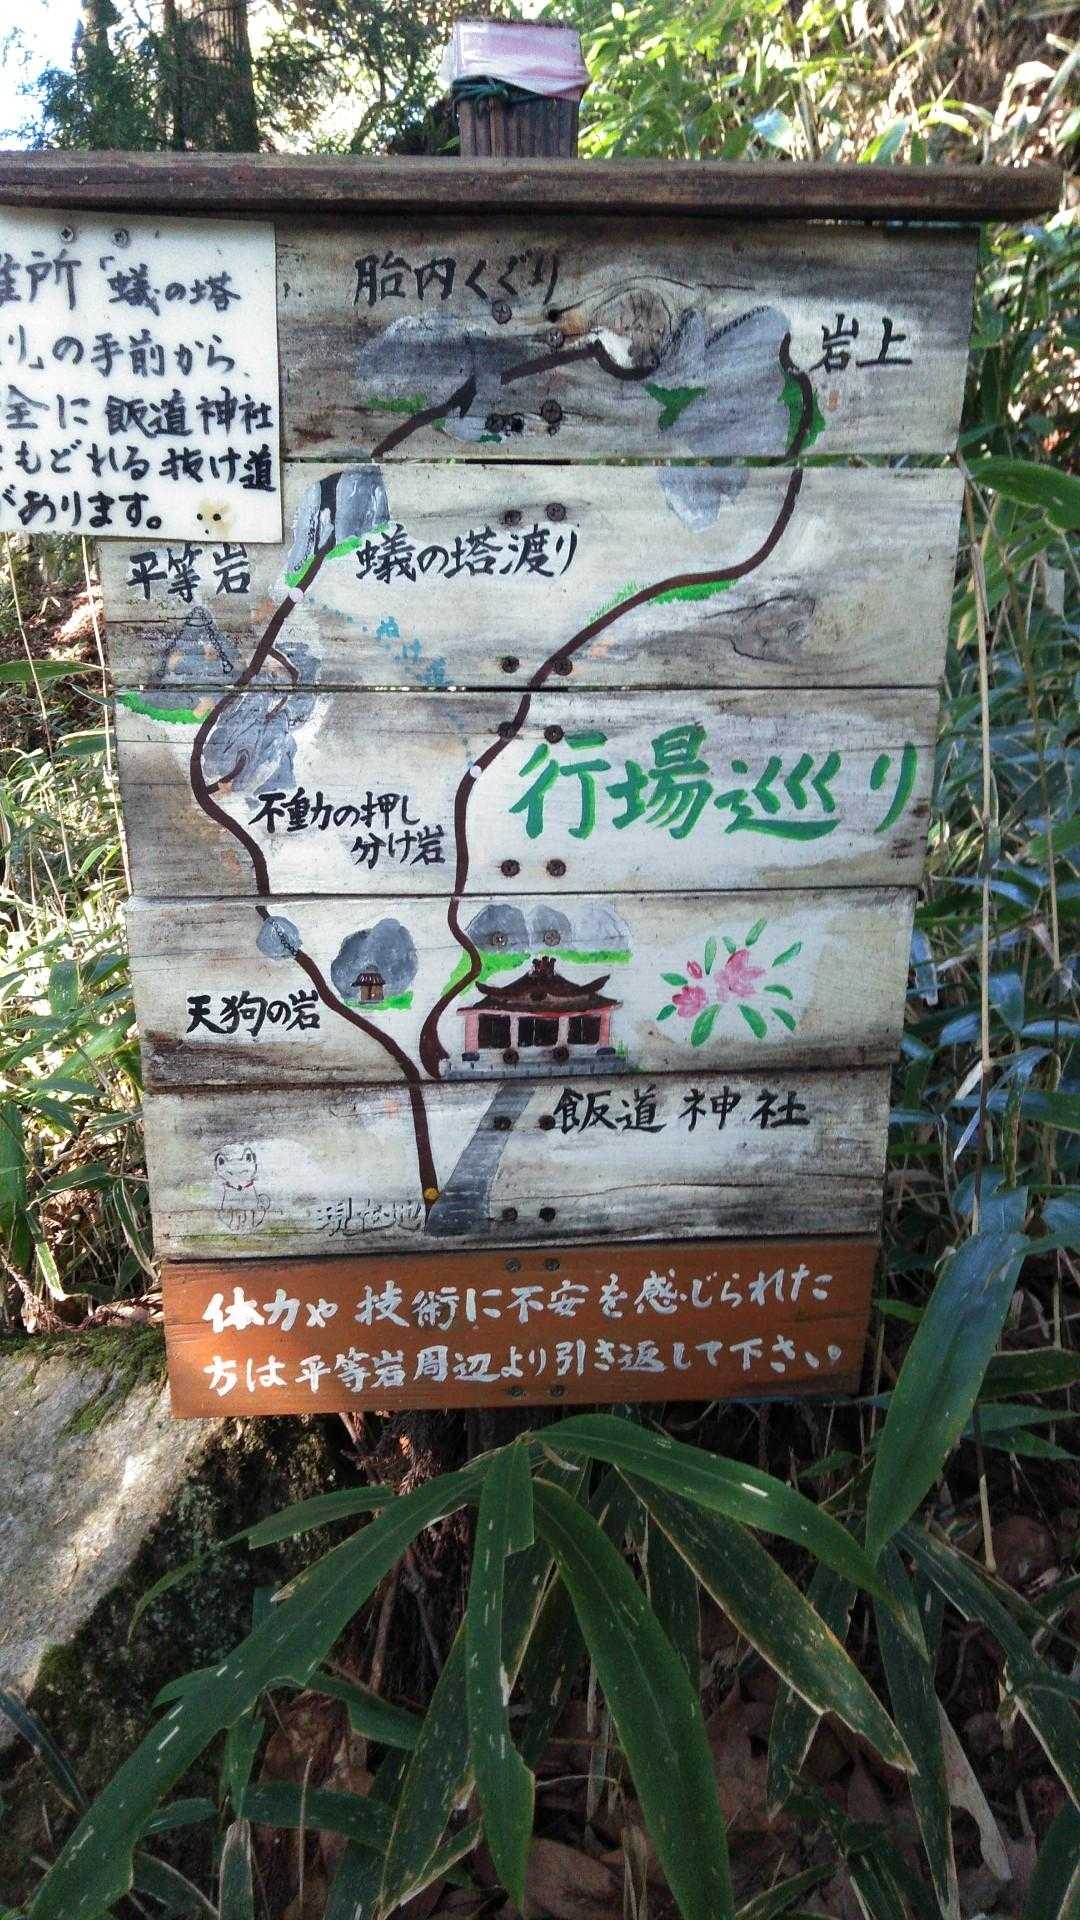 難所「蟻の塔
り」の手前から
全に飯道神社
もどれる抜け道
があります。
胎内くぐり
岩上
平等岩
蟻の塔渡り
ぬけ道
行場巡り
不動の押し
分け岩
天狗の岩
飯道神社
現在地
体力や技術に不安を感じられた
方は平等岩周辺より引き返して下さい。